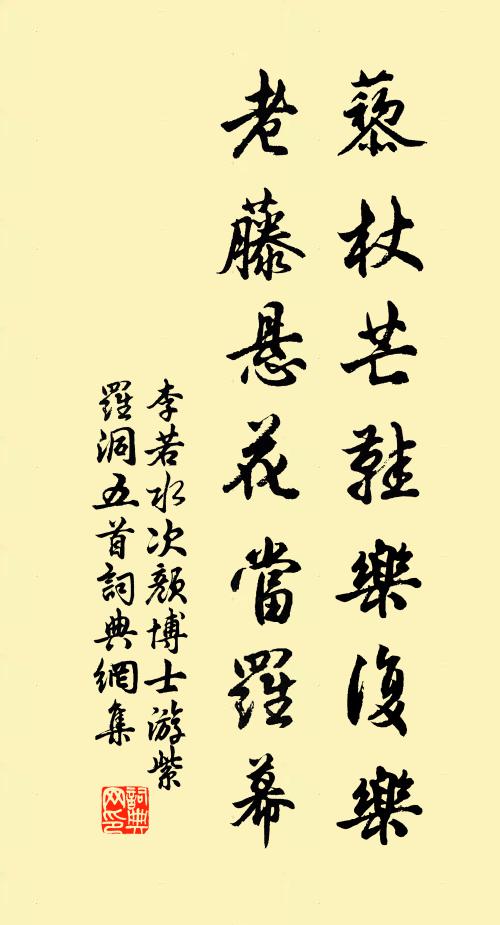 藜杖芒鞋樂復樂
老藤悬花當羅幕
李若水次颜博士游紫
羅洞五首詞典網集
詞典網印